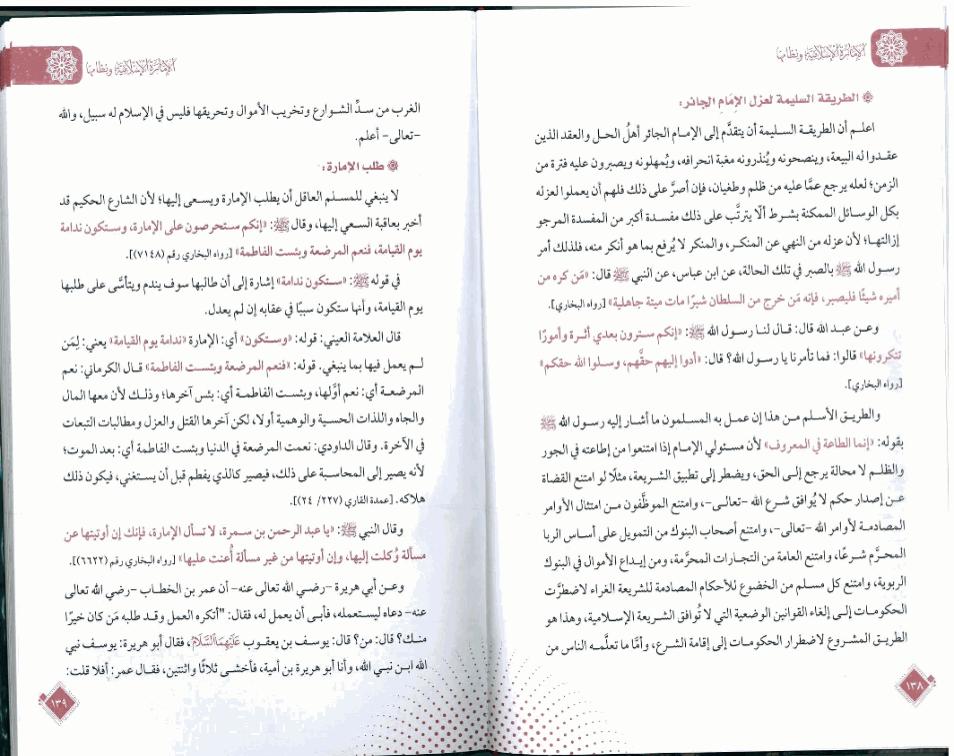 الإمارة الإسلامية ونظامها
❁ الطريقة السليمة لعزل الإمام الجائر:
اعلم أن الطريقة السليمة أن يتقدَّم إلى الإمام الجائر أهلُ الحل والعقد الذين
عقدوا له البيعة، وينصحونه ويُنذرونه مغبة انحرافه، ويُمهلونه ويصبرون عليه فترة من
الزمن؛ لعله يرجع عمَّا عليه من ظلم وطغيان، فإن أصرَّ على ذلك فلهم أن يعملوا لعزله
بكل الوسائل الممكنة بشرط ألَّا يترتَّب على ذلك مفسدة أكبر من المفسدة المرجو
إزالتها؛ لأن عزله من النهي عن المنكر، والمنكر لا يُرفع بما هو أنكر منه، فلذلك أمر
رسول الله ﷺ بالصبر في تلك الحالة، عن ابن عباس، عن النبي ﷺ قال: «مَن كره من
أميره شيئًا فليصبر، فإنه مَن خرج من السلطان شبرًا مات ميتة جاهلية» [رواه البخاري].
وعن عبد الله قال: قال لنا رسول الله ﷺ: «إنكم سترون بعدي أثرة وأمورًا
تنكرونها» قالوا: فما تأمرنا يا رسول الله؟ قال: «أدوا إليهم حقَّهم، وسلوا الله حقكم»
[رواه البخاري].
والطريق الأسلم من هذا إن عمل به المسلمون ما أشار إليه رسول الله ﷺ
بقوله: «إنما الطاعة في المعروف» لأن مسئولي الإمام إذا امتنعوا من إطاعته في الجور
والظلم لا محالة يرجع إلى الحق، ويضطر إلى تطبيق الشريعة، مثلًا لو امتنع القضاة
عن إصدار حكم لا يُوافق شرع الله -تعالى-، وامتنع الموظَّفون من امتثال الأوامر
المصادمة لأوامر الله -تعالى-، وامتنع أصحاب البنوك من التمويل على أساس الربا
المحرَّم شرعًا، وامتنع العامة من التجارات المحرَّمة، ومن إيداع الأموال في البنوك
الربوية، وامتنع كل مسلم من الخضوع للأحكام المصادمة للشريعة الغراء لاضطرَّت
الحكومات إلى إلغاء القوانين الوضعية التي لا تُوافق الشريعة الإسلامية، وهذا هو
الطريق المشروع لاضطرار الحكومات إلى إقامة الشرع، وأمَّا ما تعلَّمه الناس من
١٣٨
الإمارة الإسلامية ونظامها
الغرب من سدِّ الشوارع وتخريب الأموال وتحريقها فليس في الإسلام له سبيل، والله
-تعالى- أعلم.
❁ طلب الإمارة:
لا ينبغي للمسلم العاقل أن يطلب الإمارة ويسعى إليها؛ لأن الشارع الحكيم قد
أخبر بعاقبة السعي إليها، وقال ﷺ: «إنكم ستحرصون على الإمارة، وستكون ندامة
يوم القيامة، فنعم المرضعة وبئست الفاطمة» [رواه البخاري رقم (٧١٤٨)].
في قوله ﷺ: «ستكون ندامة» إشارة إلى أن طالبها سوف يندم ويتأسَّى على طلبها
يوم القيامة، وأنها ستكون سببًا في عقابه إن لم يعدل.
قال العلامة العيني: قوله: «وستكون» أي: الإمارة «ندامة يوم القيامة» يعني: لِمَن
لم يعمل فيها بما ينبغي. قوله: «فنعم المرضعة وبئست الفاطمة» قال الكرماني: نعم
المرضعة أي: نعم أوَّلها، وبئست الفاطمة أي: بئس آخرها؛ وذلك لأن معها المال
والجاه واللذات الحسية والوهمية أولا، لكن آخرها القتل والعزل ومطالبات التبعات
في الآخرة. وقال الداودي: نعمت المرضعة في الدنيا وبئست الفاطمة أي: بعد الموت؛
لأنه يصير إلى المحاسبة على ذلك، فيصير كالذي يفطم قبل أن يستغني، فيكون ذلك
هلاكه. [عمدة القاري (٢٢٧/ ٢٤)].
وقال النبي ﷺ: «يا عبد الرحمن بن سمرة، لا تسأل الإمارة، فإنك إن أوتيتها عن
مسألة وُكلت إليها، وإن أوتيتها من غير مسألة أُعنت عليها» [رواه البخاري رقم (٦٦٢٢)].
وعن أبي هريرة -رضي الله تعالى عنه- أن عمر بن الخطاب -رضي الله تعالى
عنه- دعاه ليستعمله، فأبى أن يعمل له، فقال: "أتكره العمل وقد طلبه مَن كان خيرًا
منك؟ قال: من؟ قال: يوسف بن يعقوب عَلَيْهِمَا السَّلَامُ، فقال أبو هريرة: يوسف نبي
الله ابن نبي الله، وأنا أبو هريرة بن أمية، فأخشى ثلاثًا واثنتين، فقال عمر: أفلا قلت:
١٣٩